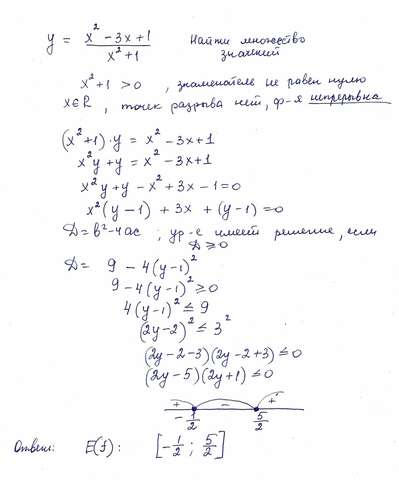 y = (x² - 3x + 1)/(x² + 1) Найти множество
значений
x² + 1 > 0 , знаменатель не равен нулю
x∈R , точек разрыва нет, ф-я непрерывна
(x² + 1) · y = x² - 3x + 1
x²y + y = x² - 3x + 1
x²y + y - x² + 3x - 1 = 0
x²(y - 1) + 3x + (y - 1) = 0
D = b² - 4ac ; ур-е имеет решение, если
D ≥ 0
D = 9 - 4(y - 1)²
9 - 4(y - 1)² ≥ 0
4(y - 1)² ≤ 9
(2y - 2)² ≤ 3²
(2y - 2 - 3)(2y - 2 + 3) ≤ 0
(2y - 5)(2y + 1) ≤ 0
+ - +
-1/2 5/2
Ответ: E(f): [-1/2 ; 5/2]